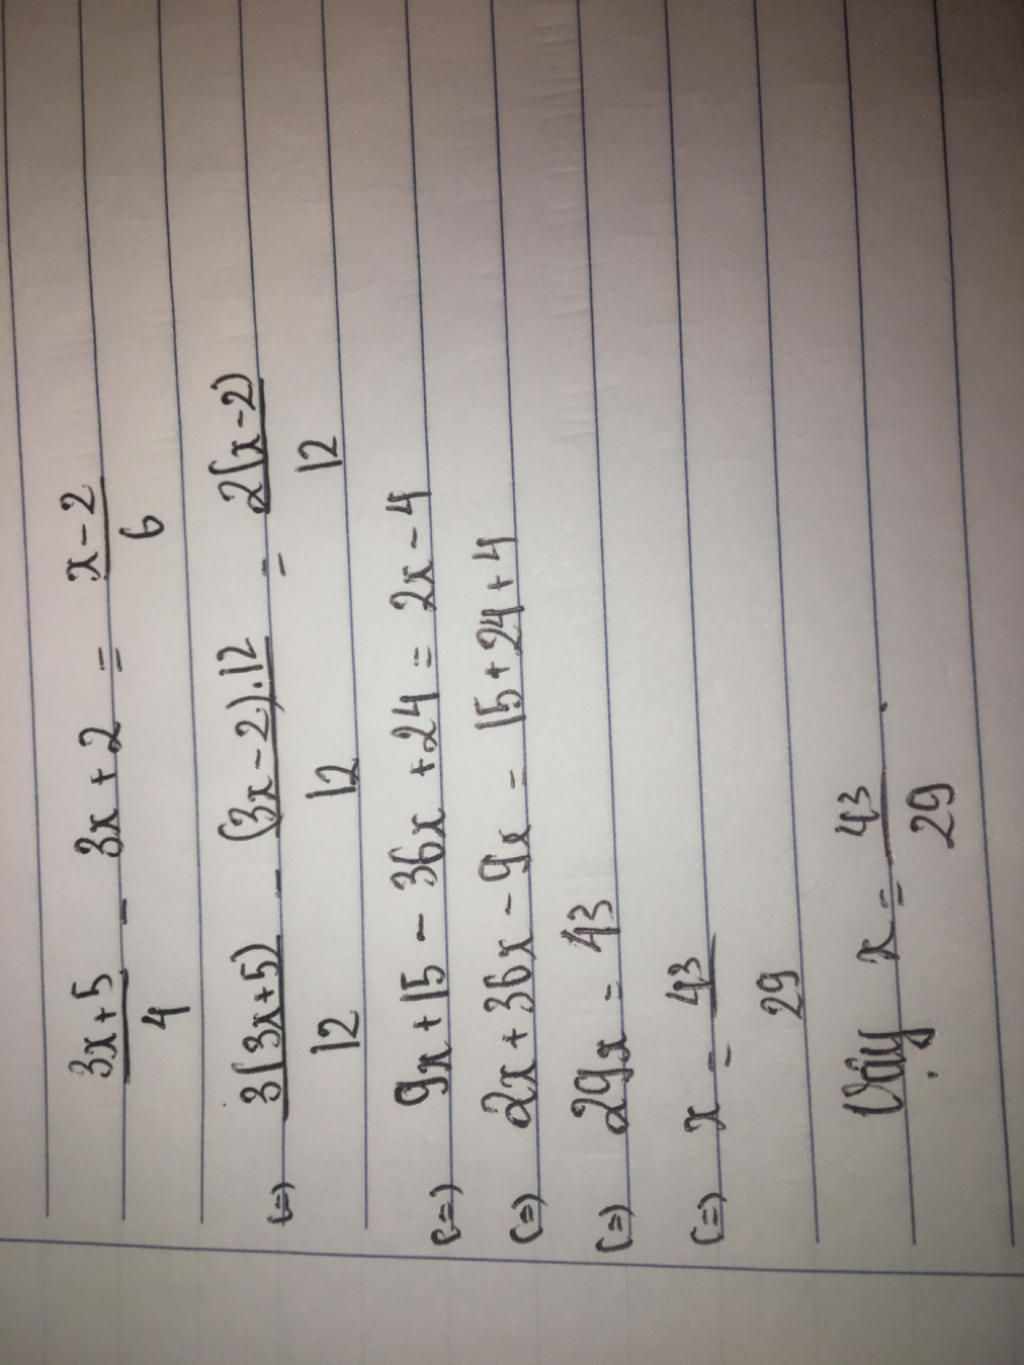 (3x+5)/4 - 3x + 2 = (x-2)/6
(=) 3(3x+5)/12 - (3x-2).12/12 = 2(x-2)/12
(=) 9x+15 - 36x + 24 = 2x - 4
(=) 2x + 36x - 9x = 15 + 24 + 4
(=) 29x = 43
(=) x = 43/29
Vậy x = 43/29.